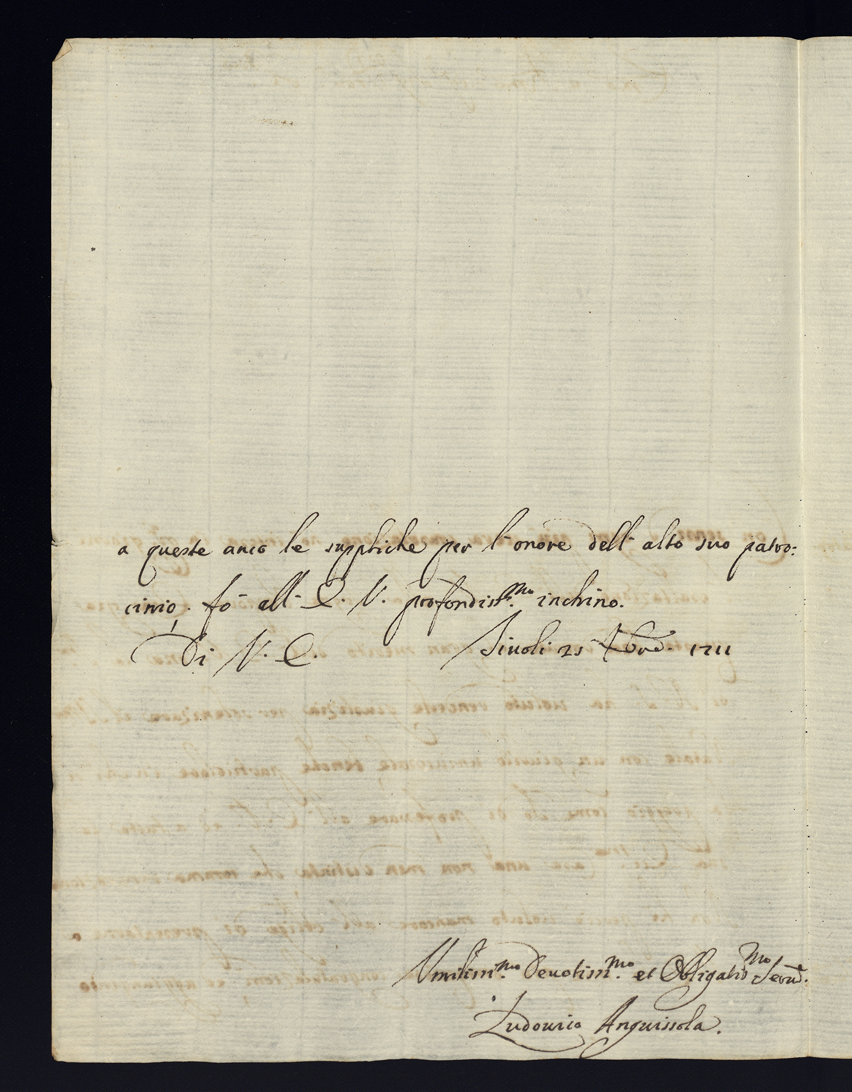 a queste anco le suppliche per l'onore dell'alto suo patro:
cinio. fò all'E. V. profondiss.mo inchino.
Di V. E. Tivoli 21 Xbre. 1711
Umilissi.mo Devotissi.mo et Obbligatis.mo Serv.
Ludovico Anguissola.